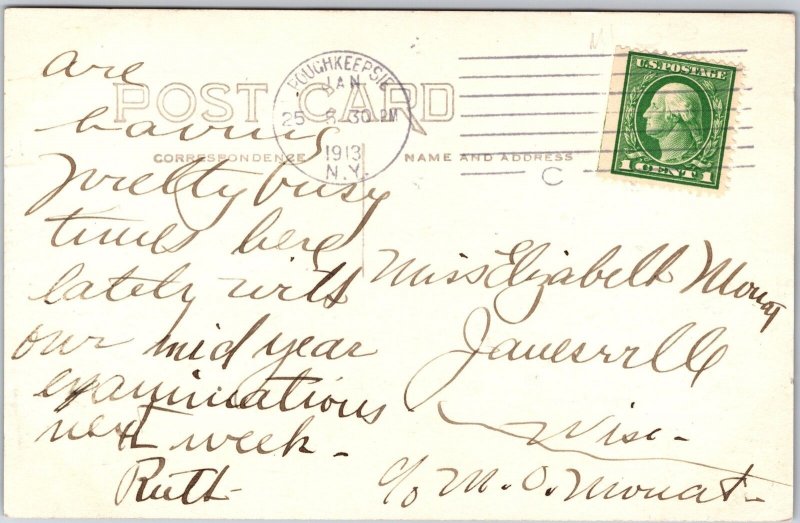 are
having
pretty busy
times here
lately with
our mid year
examinations
next week -
Ruth
POST CARD
CORRESPONDENCE
NAME AND ADDRESS
POUGHKEEPSIE
JAN
25 8 30 PM
1913
N.Y.
U.S. POSTAGE
1 CENT 1
C
Miss Elizabeth Mouat
Janesville
Wisc -
c/o M. O. Mouat -